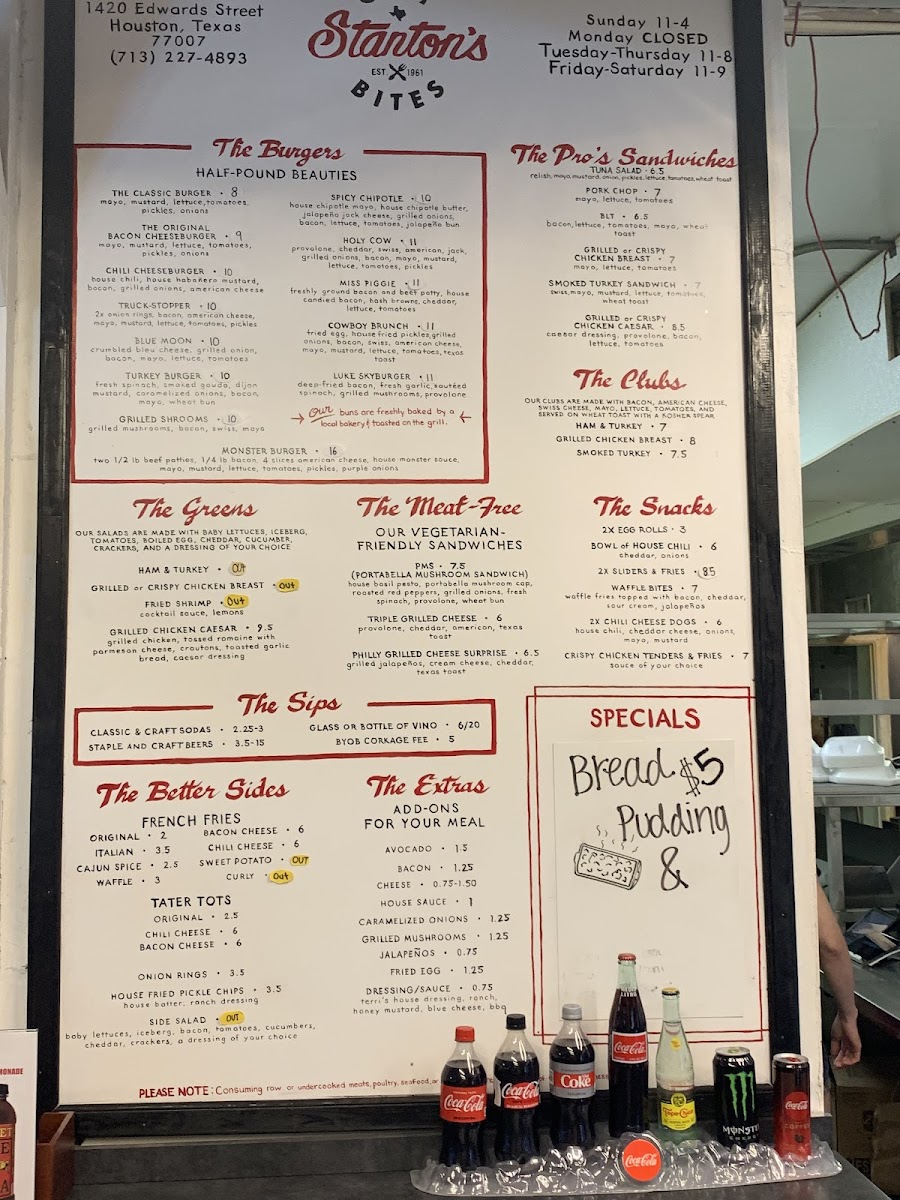 1420 Edwards Street
Houston, Texas
77007
(713) 227-4893
Stanton's
EST 1961
BITES
Sunday 11-4
Monday CLOSED
Tuesday-Thursday 11-8
Friday-Saturday 11-9
The Burgers
HALF-POUND BEAUTIES
THE CLASSIC BURGER • 8
mayo, mustard, lettuce, tomatoes,
pickles, onions
THE ORIGINAL
BACON CHEESEBURGER • 9
mayo, mustard, lettuce, tomatoes,
pickles, onions
CHILI CHEESEBURGER • 10
house chili, house habañero mustard,
bacon, grilled onions, american cheese
TRUCK-STOPPER • 10
2x onion rings, bacon, american cheese,
mayo, mustard, lettuce, tomatoes, pickles
BLUE MOON • 10
crumbled bleu cheese, grilled onion,
bacon, mayo, lettuce, tomatoes
TURKEY BURGER • 10
fresh spinach, smoked gouda, dijon
mustard, caramelized onions, bacon,
mayo, wheat bun
GRILLED SHROOMS • 10
grilled mushrooms, bacon, swiss, mayo
SPICY CHIPOTLE • 10
house chipotle mayo, house chipotle butter,
jalapeño jack cheese, grilled onions,
bacon, lettuce, tomatoes, jalapeño bun
HOLY COW • 11
provolone, cheddar, swiss, american, jack,
grilled onions, bacon, mayo, mustard,
lettuce, tomatoes, pickles
MISS PIGGIE • 11
freshly ground bacon and beef patty, house
candied bacon, hash browns, cheddar,
lettuce, tomatoes
COWBOY BRUNCH • 11
fried egg, house fried pickles, grilled
onions, bacon, swiss, american cheese,
mayo, mustard, lettuce, tomatoes, texas
toast
LUKE SKYBURGER • 11
deep-fried bacon, fresh garlic, sautéed
spinach, grilled mushrooms, provolone
Our buns are freshly baked by a
local bakery & toasted on the grill.
MONSTER BURGER • 16
two 1/2 lb beef patties, 1/4 lb bacon, 4 slices american cheese, house monster sauce,
mayo, mustard, lettuce, tomatoes, pickles, purple onions
The Pro's Sandwiches
TUNA SALAD • 6.5
relish, mayo, mustard, onion, pickles, lettuce, tomatoes, wheat toast
PORK CHOP • 7
mayo, lettuce, tomatoes
BLT • 6.5
bacon, lettuce, tomatoes, mayo, wheat
toast
GRILLED or CRISPY
CHICKEN BREAST • 7
mayo, lettuce, tomatoes
SMOKED TURKEY SANDWICH • 7
swiss, mayo, mustard, lettuce, tomatoes,
wheat toast
GRILLED or CRISPY
CHICKEN CAESAR • 8.5
caesar dressing, provolone, bacon,
lettuce, tomatoes
The Clubs
OUR CLUBS ARE MADE WITH BACON, AMERICAN CHEESE,
SWISS CHEESE, MAYO, LETTUCE, TOMATOES, AND
SERVED ON WHEAT TOAST WITH A KOSHER SPEAR
HAM & TURKEY • 7
GRILLED CHICKEN BREAST • 8
SMOKED TURKEY • 7.5
The Greens
OUR SALADS ARE MADE WITH BABY LETTUCES, ICEBERG,
TOMATOES, BOILED EGG, CHEDDAR, CUCUMBER,
CRACKERS, AND A DRESSING OF YOUR CHOICE
HAM & TURKEY • OUT
GRILLED or CRISPY CHICKEN BREAST • OUT
FRIED SHRIMP • OUT
cocktail sauce, lemons
GRILLED CHICKEN CAESAR • 9.5
grilled chicken, tossed romaine with
parmesan cheese, croutons, toasted garlic
bread, caesar dressing
The Meat-Free
OUR VEGETARIAN-
FRIENDLY SANDWICHES
PMS • 7.5
(PORTABELLA MUSHROOM SANDWICH)
house basil pesto, portabella mushroom cap,
roasted red peppers, grilled onions, fresh
spinach, provolone, wheat bun
TRIPLE GRILLED CHEESE • 6
provolone, cheddar, american, texas
toast
PHILLY GRILLED CHEESE SURPRISE • 6.5
grilled jalapeños, cream cheese, cheddar,
texas toast
The Snacks
2X EGG ROLLS • 3
BOWL of HOUSE CHILI • 6
cheddar, onions
2X SLIDERS & FRIES • 8.5
WAFFLE BITES • 7
waffle fries topped with bacon, cheddar,
sour cream, jalapeños
2X CHILI CHEESE DOGS • 6
house chili, cheddar cheese, onions,
mayo, mustard
CRISPY CHICKEN TENDERS & FRIES • 7
sauce of your choice
The Sips
CLASSIC & CRAFT SODAS • 2.25-3
STAPLE AND CRAFT BEERS • 3.5-15
GLASS OR BOTTLE OF VINO • 6/20
BYOB CORKAGE FEE • 5
The Better Sides
FRENCH FRIES
ORIGINAL • 2
ITALIAN • 3.5
CAJUN SPICE • 2.5
WAFFLE • 3
BACON CHEESE • 6
CHILI CHEESE • 6
SWEET POTATO • OUT
CURLY • OUT
TATER TOTS
ORIGINAL • 2.5
CHILI CHEESE • 6
BACON CHEESE • 6
ONION RINGS • 3.5
HOUSE FRIED PICKLE CHIPS • 3.5
house batter, ranch dressing
SIDE SALAD • OUT
baby lettuces, iceberg, bacon, tomatoes, cucumbers,
cheddar, crackers, a dressing of your choice
The Extras
ADD-ONS
FOR YOUR MEAL
AVOCADO • 1.5
BACON • 1.25
CHEESE • 0.75-1.50
HOUSE SAUCE • 1
CARAMELIZED ONIONS • 1.25
GRILLED MUSHROOMS • 1.25
JALAPEÑOS • 0.75
FRIED EGG • 1.25
DRESSING/SAUCE • 0.75
terri's house dressing, ranch,
honey mustard, blue cheese, bbq
SPECIALS
Bread $5
Pudding
&
PLEASE NOTE: Consuming raw or undercooked meats, poultry, seafood, or
MONADE
Coca-Cola
Coca-Cola
Diet
Coke
Coca-Cola
Topo Chico
MONSTER
ENERGY
Coca-Cola
COFFEE
Coca-Cola